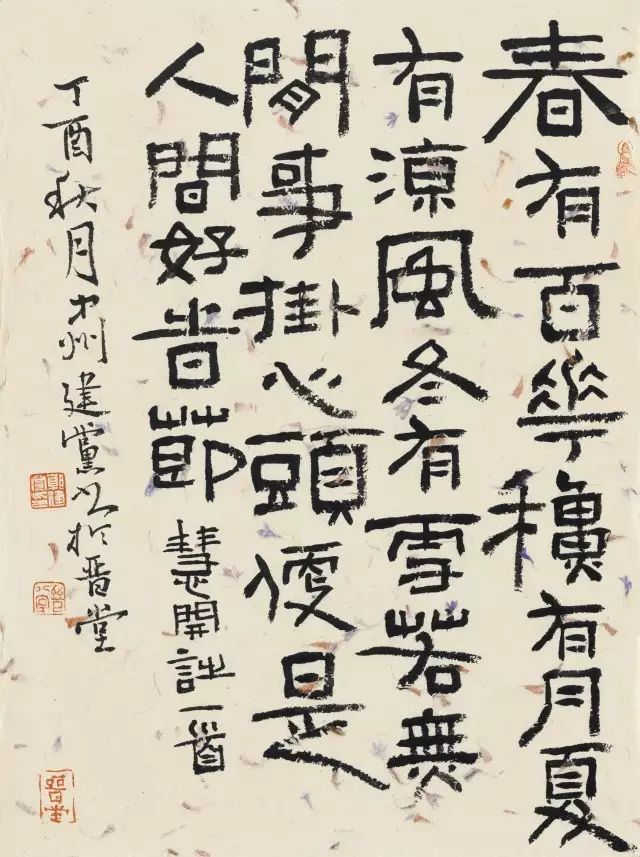 春有百華穐有月夏
有涼風冬有雪若無
閒事掛心頭便是
人間好旹節 慧開詩一首
丁酉秋月中州建黨书於晉堂